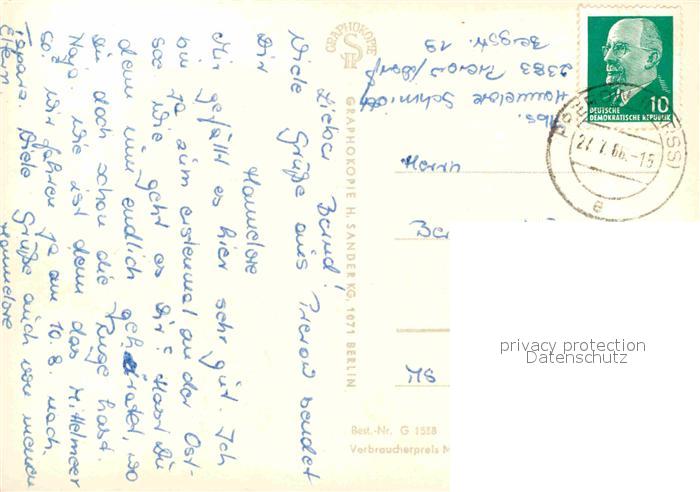 Lieber Bernd!
Viele Grüße aus Prerow sendet
Dir
Hannelore
Mir gefällt es hier sehr gut. Ich
bin ja zum erstenmal an der Ost-
see. Wie geht es Dir? Hast Du
denn nun endlich geheiratet, wo
Du doch schon die Ringe hast.
Naja. Wie ist denn das Mittelmeer
so? Wir fahren ja am 10. 8. nach
Viele Grüße auch von meinen
Eltern
Hannelore
Abs.
Hannelore Schmidt
2383 Prerow/Darß
Bergstr. 19
GRAPHOKOPIE
GRAPHOKOPIE H. SANDER KG, 1071 BERLIN
10
DEUTSCHE
DEMOKRATISCHE REPUBLIK
PREROW (DARSS)
27.7.66.-15
e
Herrn
Ber
Best.-Nr. G 1518
Verbraucherpreis M
privacy protection
Datenschutz